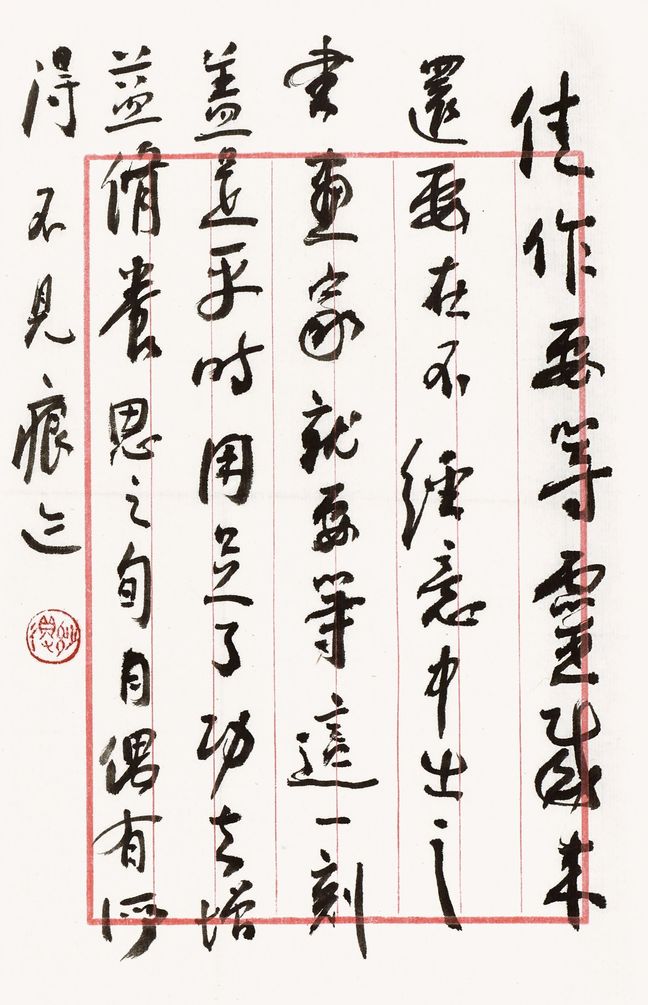 佳作要等靈感来
還要在不經意中出之
書畫家就要等這一刻
盖是平時用足了功去增
益脩養思之旬月偶有所
得不見痕迹